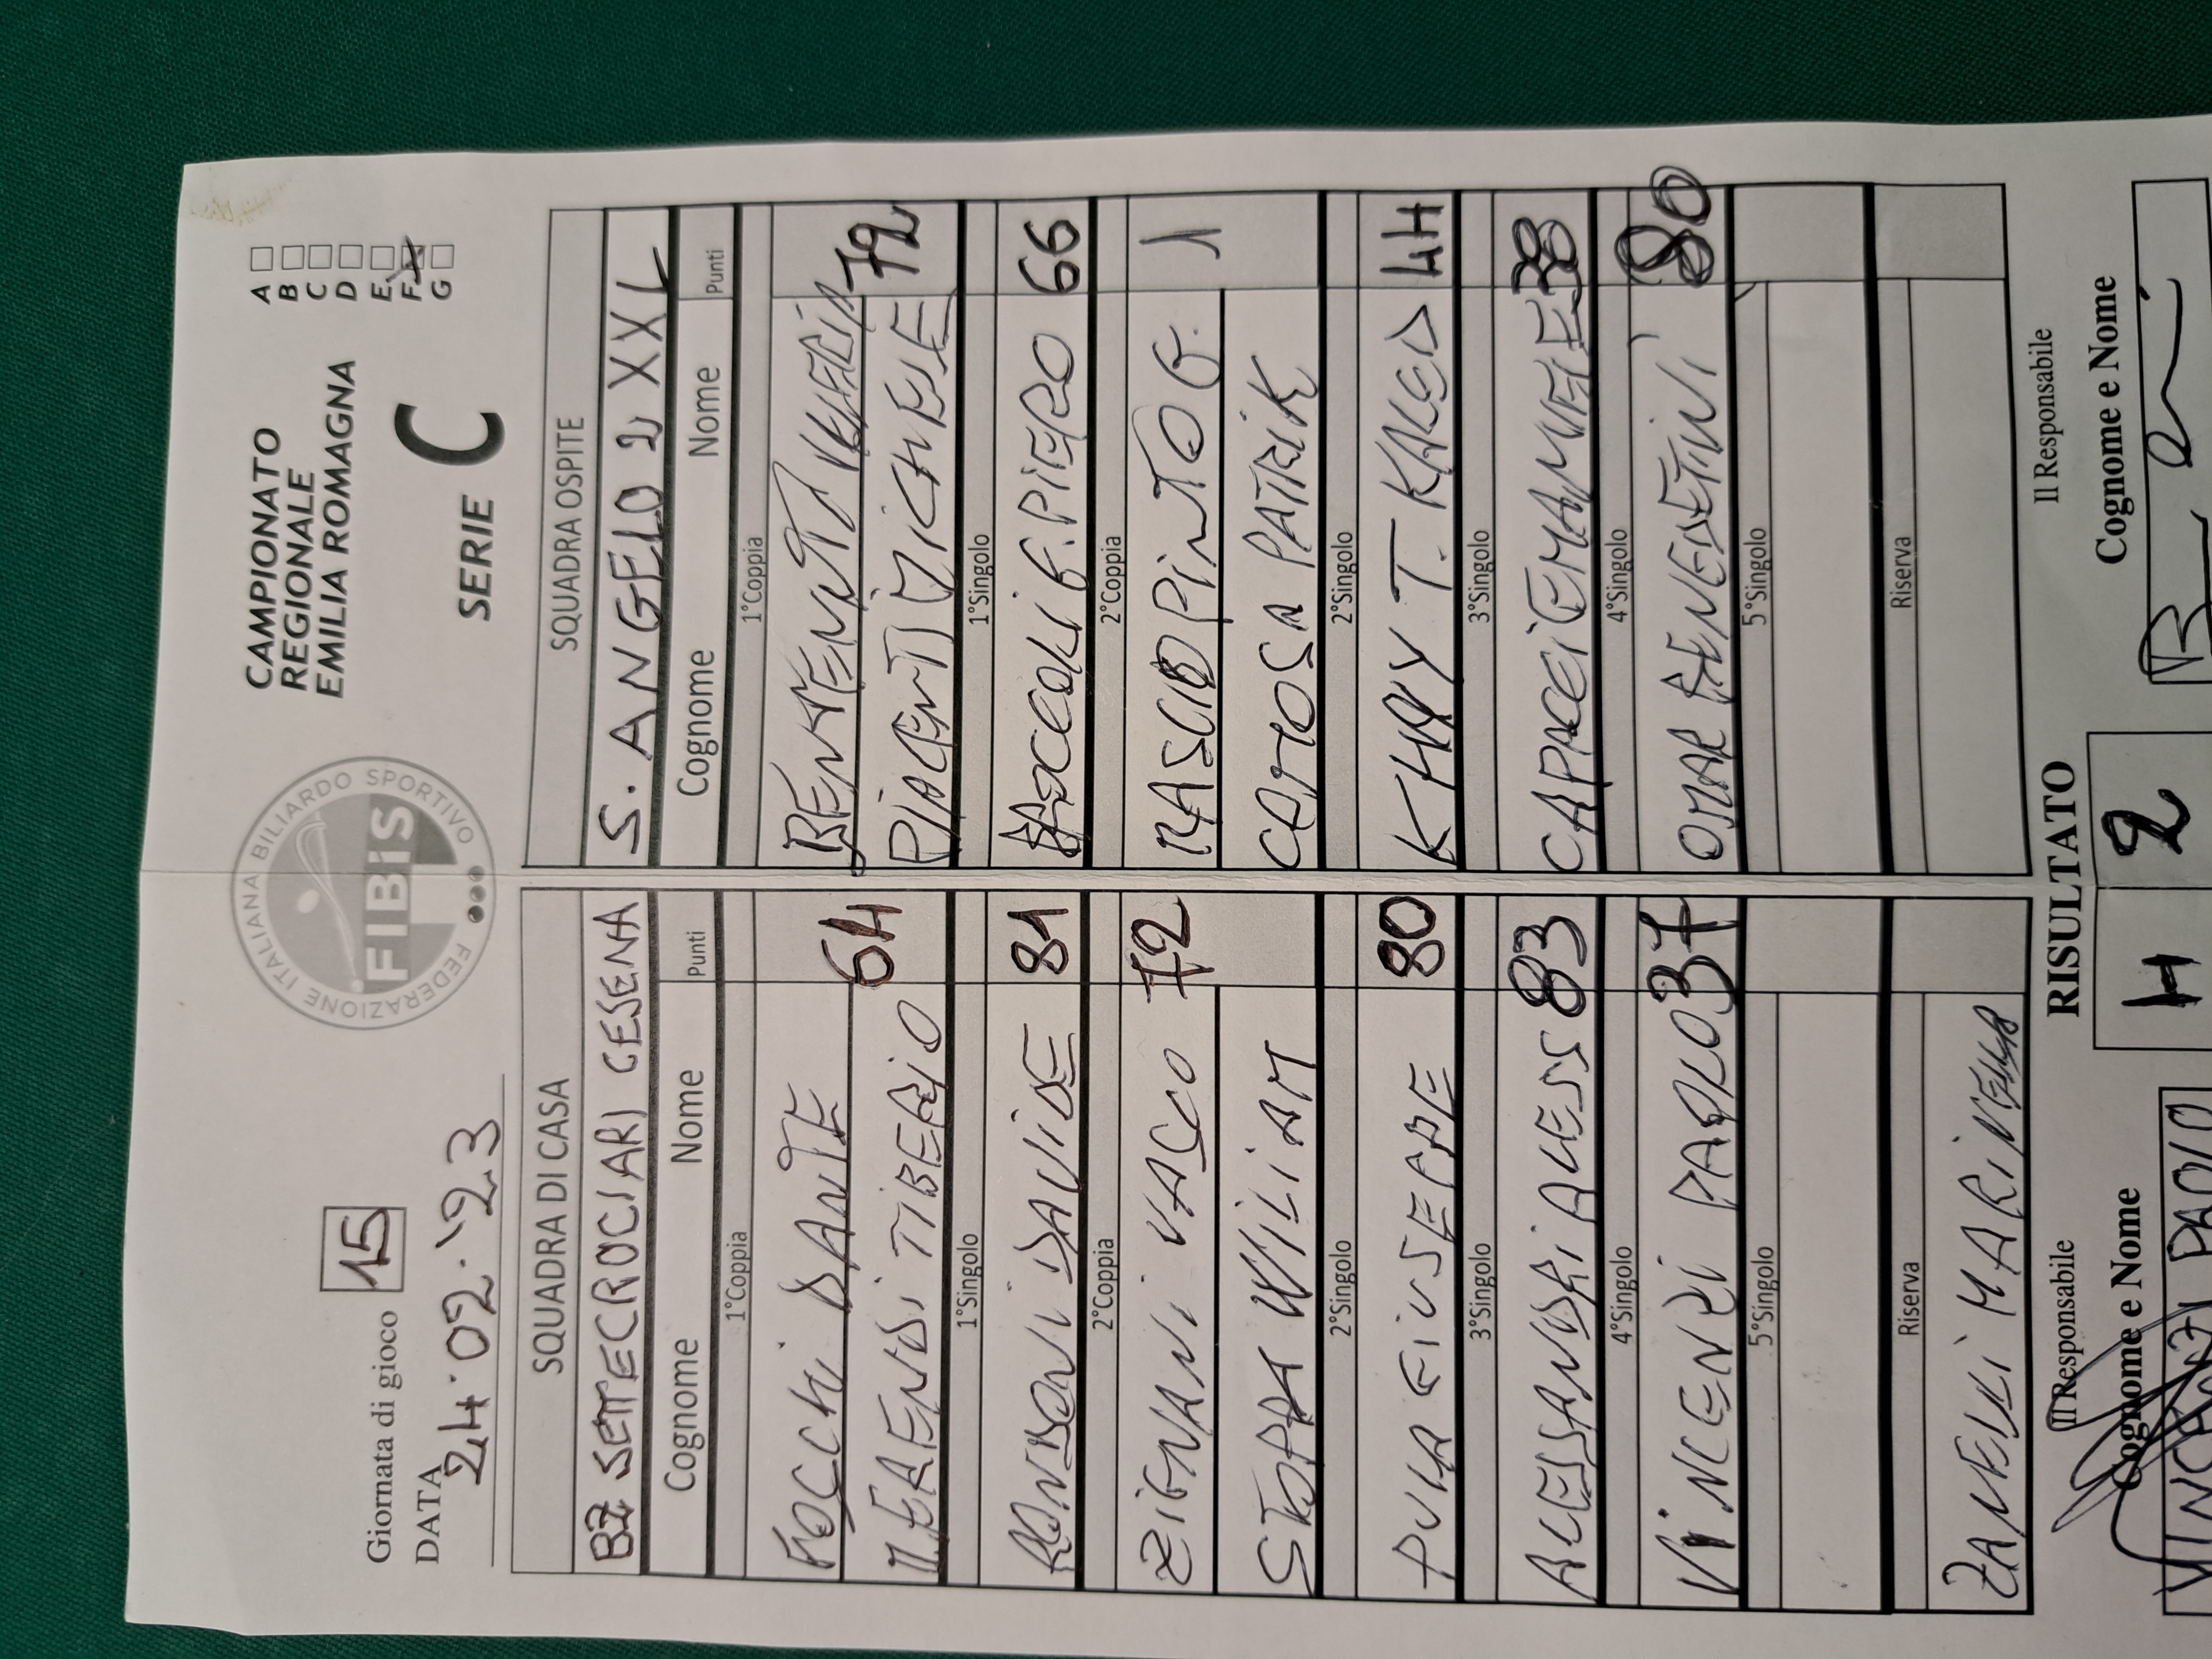 FEDERAZIONE ITALIANA BILIARDO SPORTIVO
FIBiS
CAMPIONATO
REGIONALE
EMILIA ROMAGNA
SERIE C
A
B
C
D
E
F
G
Giornata di gioco 15
DATA 24.02.'23
SQUADRA DI CASA
BZ SETTECROCIARI CESENA
Cognome Nome Punti
1°Coppia
FOCCHI DANTE
TIBERIO 64
1°Singolo
RONDONI DAVIDE 81
2°Coppia
ZIGNANI VASCO 72
STOPPA WILIAM
2°Singolo
PULA GIUSEPPE 80
3°Singolo
ALESSANDRI ALESS 83
4°Singolo
VINCENZI PAOLO 37
5°Singolo
Riserva
ZANELLI MARINELLA
SQUADRA OSPITE
S. ANGELO 2 XXL
Cognome Nome Punti
1°Coppia
BENVENUTI VALERIA
PIACENTI MICHELE 72
1°Singolo
G. PIERO 66
2°Coppia
PINTO G. 1
CAMOSA PATRIK
2°Singolo
KHAY T. KALED 44
3°Singolo
CAPACCI EMANUELE 38
4°Singolo
OMAR BENEDETTINI 80
5°Singolo
Riserva
RISULTATO
4 2
Il Responsabile
Cognome e Nome
VINCENZI PAOLO
Il Responsabile
Cognome e Nome